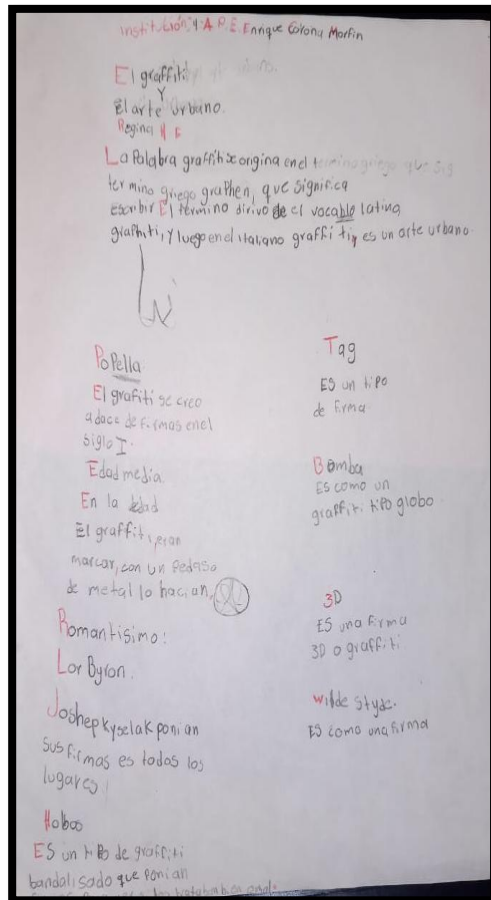 Institución: A.P.E. Enrique Corona Morfin
El graffiti
Y
El arte urbano
Regina
La Palabra graffiti se origina en el termino griego que sig
termino griego graphen, que significa
escribir El término dirivo de el vocablo latina
graphiti, Y luego en el italiano graffiti, es un arte urbano.
PoPella
El grafiti se creo
a dace de firmas en el
siglo I.
Edad media.
En la edad
El graffiti, eran
marcar, con un Pedaso
de metal lo hacian.
Romantisimo:
Lor Byron.
Joshep kyselak ponian
sus firmas es todos los
lugares
Hobos
ES un tipo de graffiti
bandalisado que ponian
Tag
ES un tipo
de firma
Bomba
ES como un
graffiti tipo globo
3D
ES una firma
3D o graffiti
Wilde Style.
ES como una firma